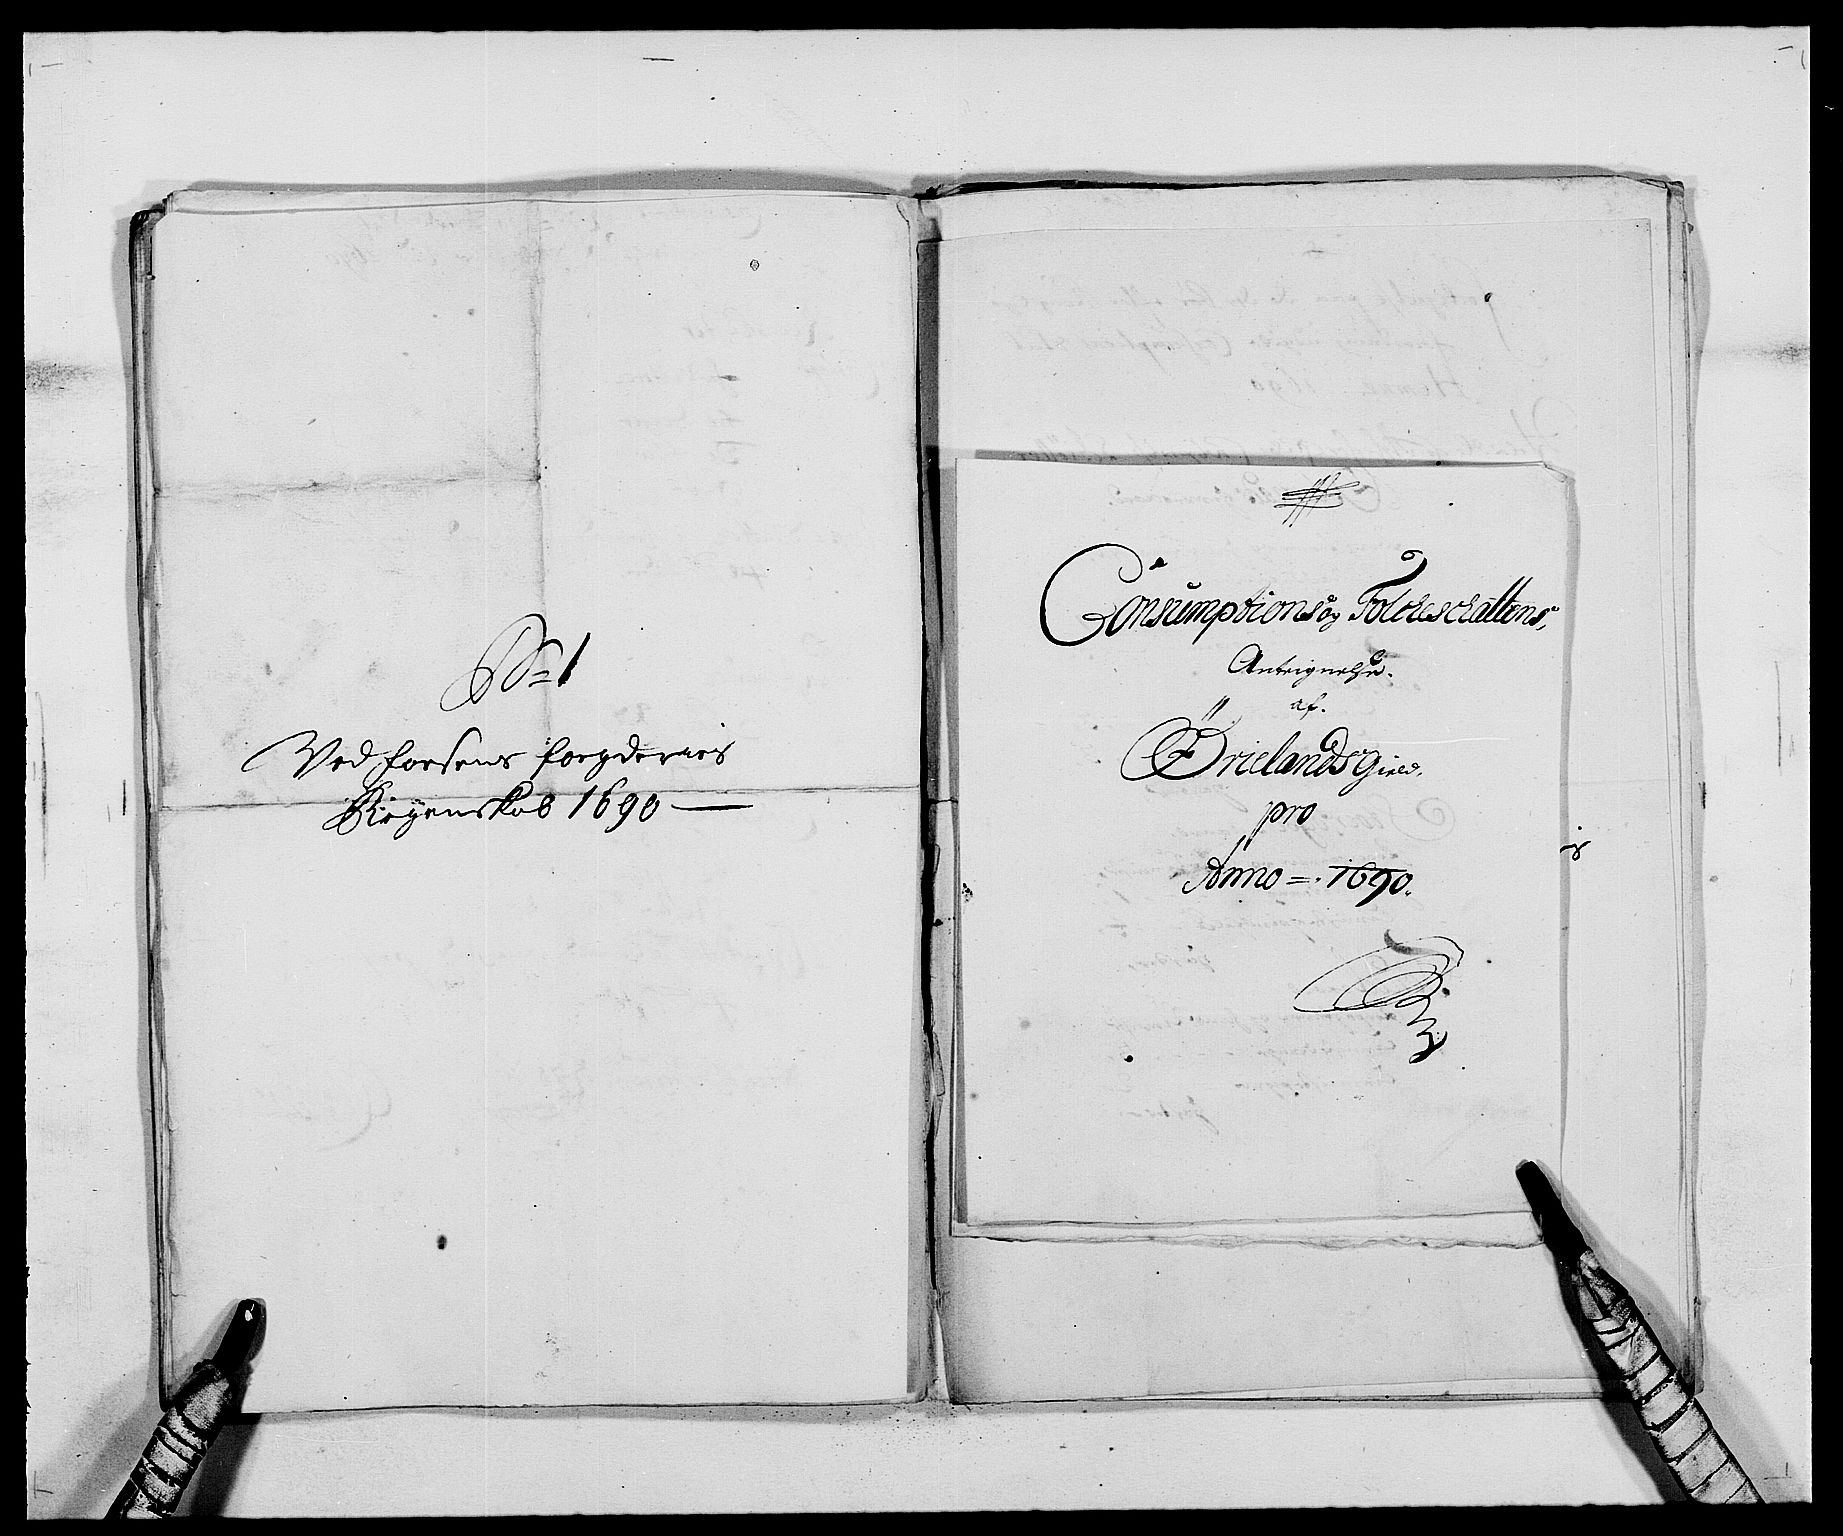 No= 1
Ved Fosens fogderies
Regenskab 1690
Consumptions og Folckeschattens,
Anteignelse.
af.
Örielands Gield.
pro
Anno =. 1690.